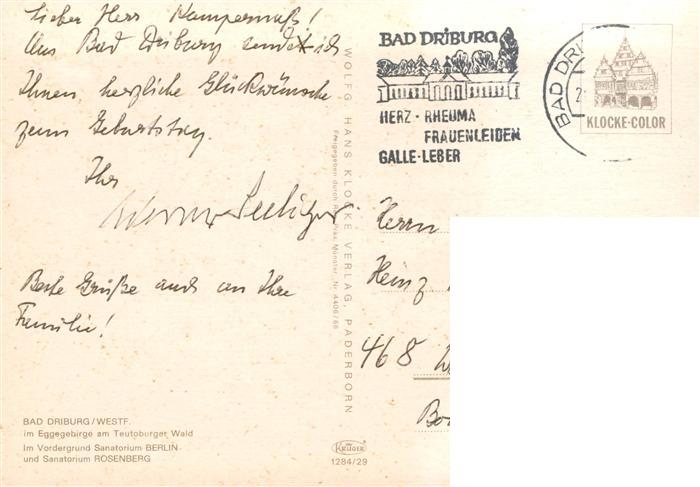 Lieber Herr Kampernuß!
Aus Bad Driburg sende ich
Ihnen herzliche Glückwünsche
zum Geburtstag.
Ihr
Werner
Beste Grüße auch an Ihre
Familie!
BAD DRIBURG/WESTF.
im Eggegebirge am Teutoburger Wald
Im Vordergrund Sanatorium BERLIN-
und Sanatorium ROSENBERG
WOLFG. HANS KLOCKE VERLAG, PADERBORN
Freigegeben durch Reg. Präs. Münster, Nr. 4406/68
KRÜGER
1284/29
BAD DRIBURG
HERZ · RHEUMA
FRAUENLEIDEN
GALLE · LEBER
BAD DRI
2
KLOCKE-COLOR
Herrn
Heinz
468